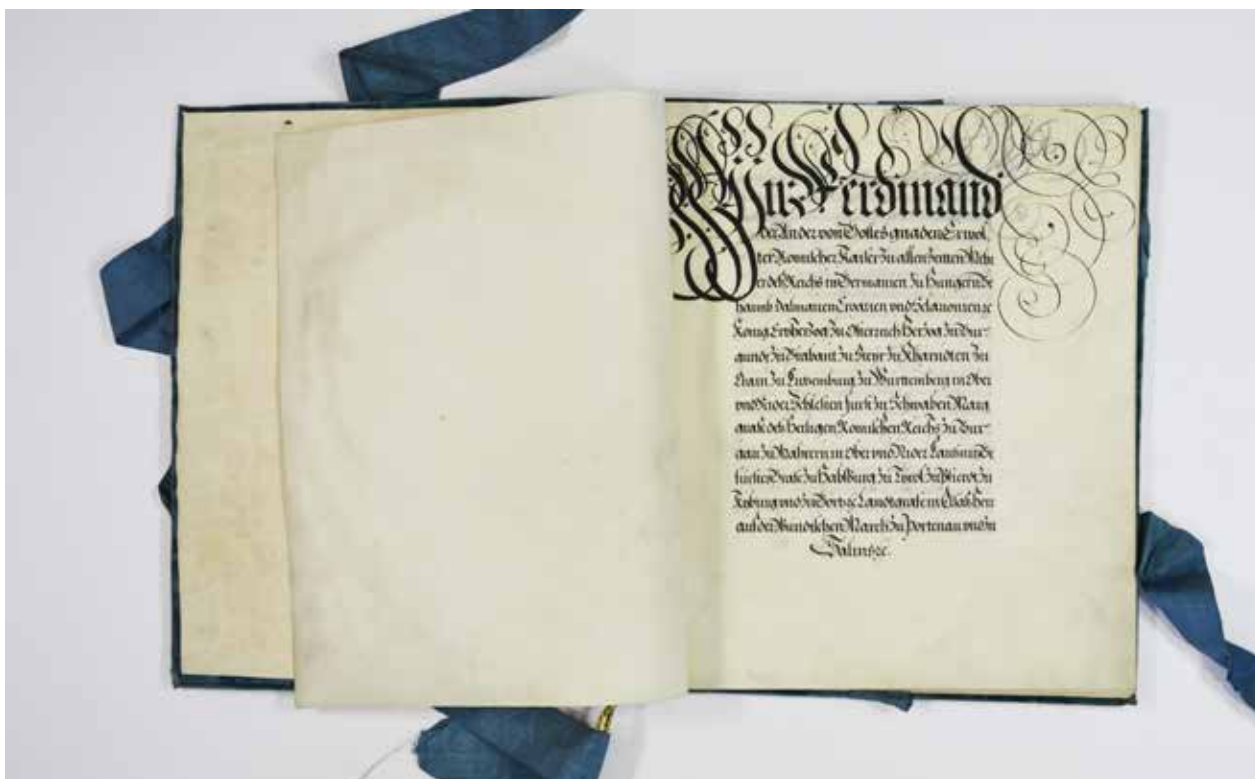 Wir Ferdinand
der Ander von Gottes gnaden Erwöl,
ter Römischer Kaiser zu allen Zeitten Mehr
er deß Reichs in Germanien zu Hungern Be
haimb Dalmatien Croatien und Sclavonien ꝛc
König Ertzhertzog zu Osterreich Hertzog zu Bur-
gundt zu Brabant zu Steyr zu Kharndten zu
Crain zu Lutzemburg zu Württemberg in Ober
und Nider Schlesien Fürst zu Schwaben Marg
grafe des Heiligen Römischen Reichs zu Bur-
gau zu Mahrern in Ober und Nider Laußnitz Ge
fürster Grafe zu Habspurg zu Tyrol zu Phierdt zu
Kyburg und zu Görtz ꝛc Landtgrafe in Elsaß Herr
auf der Windischen March zu Portenau und zu
Salins ꝛc.